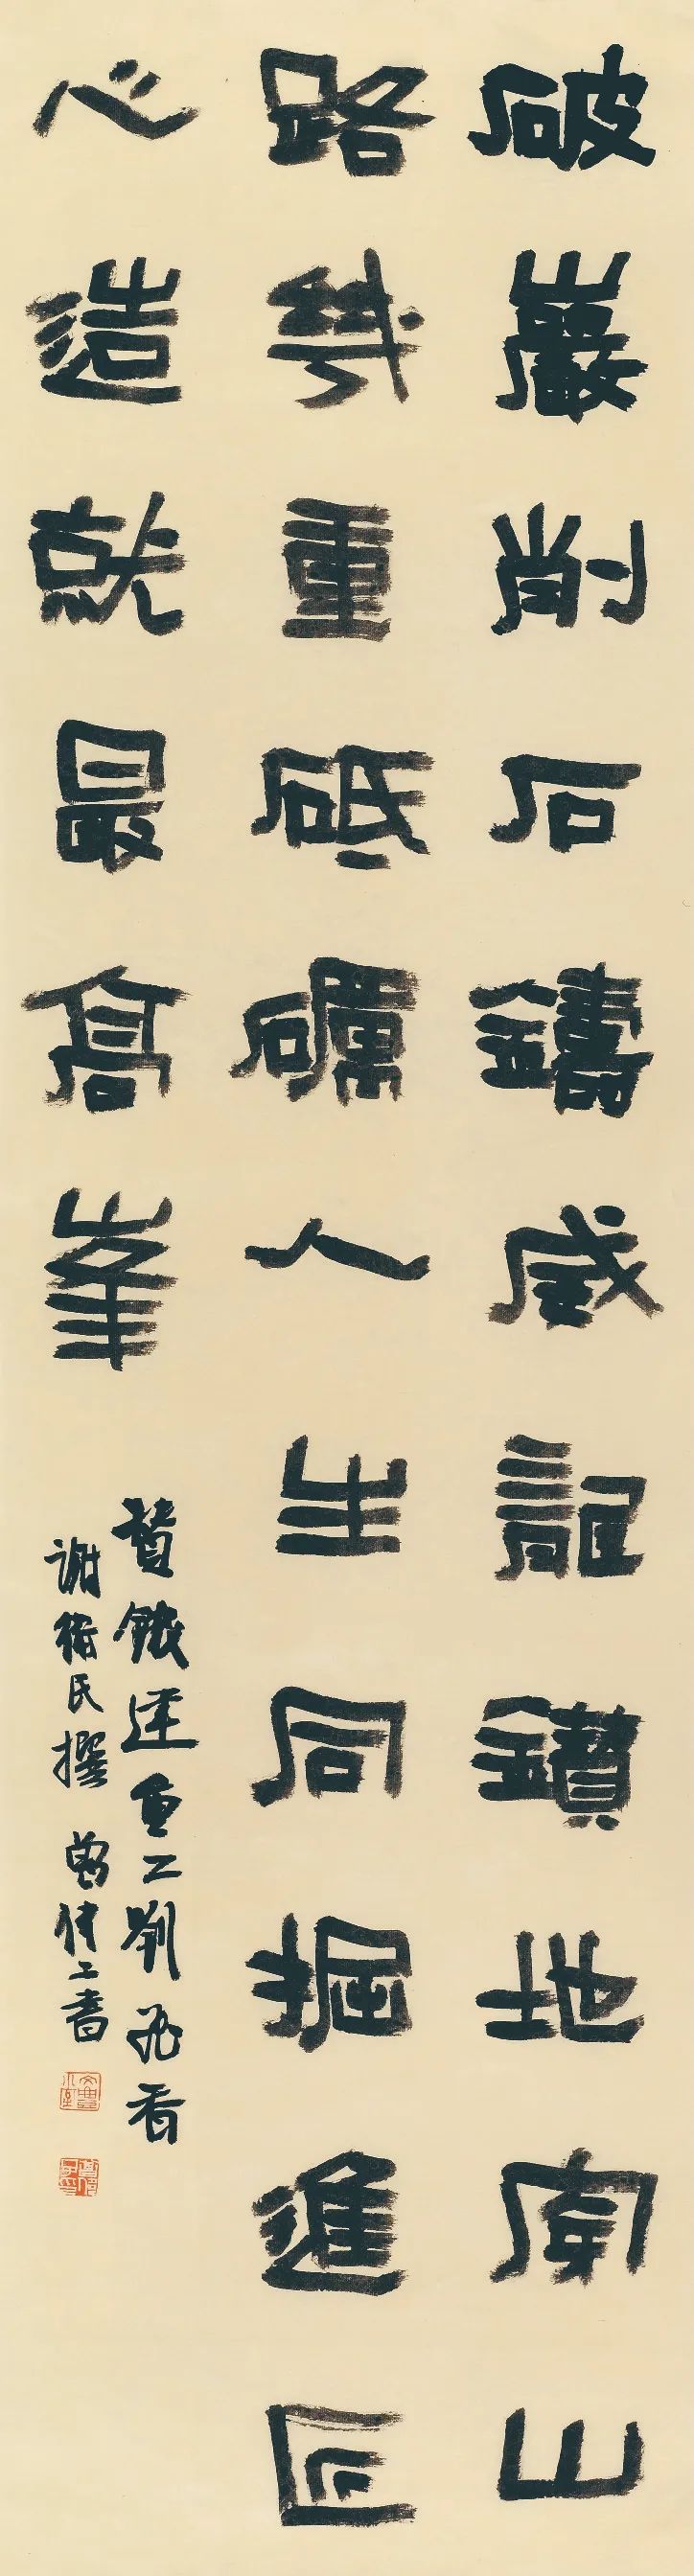 破巖削石鑄威記鑽地穿山
路幾重砥礪人生同掘進匠
心造就最高峯
贊鐵建重工劉飛香
謝民撰 曾書